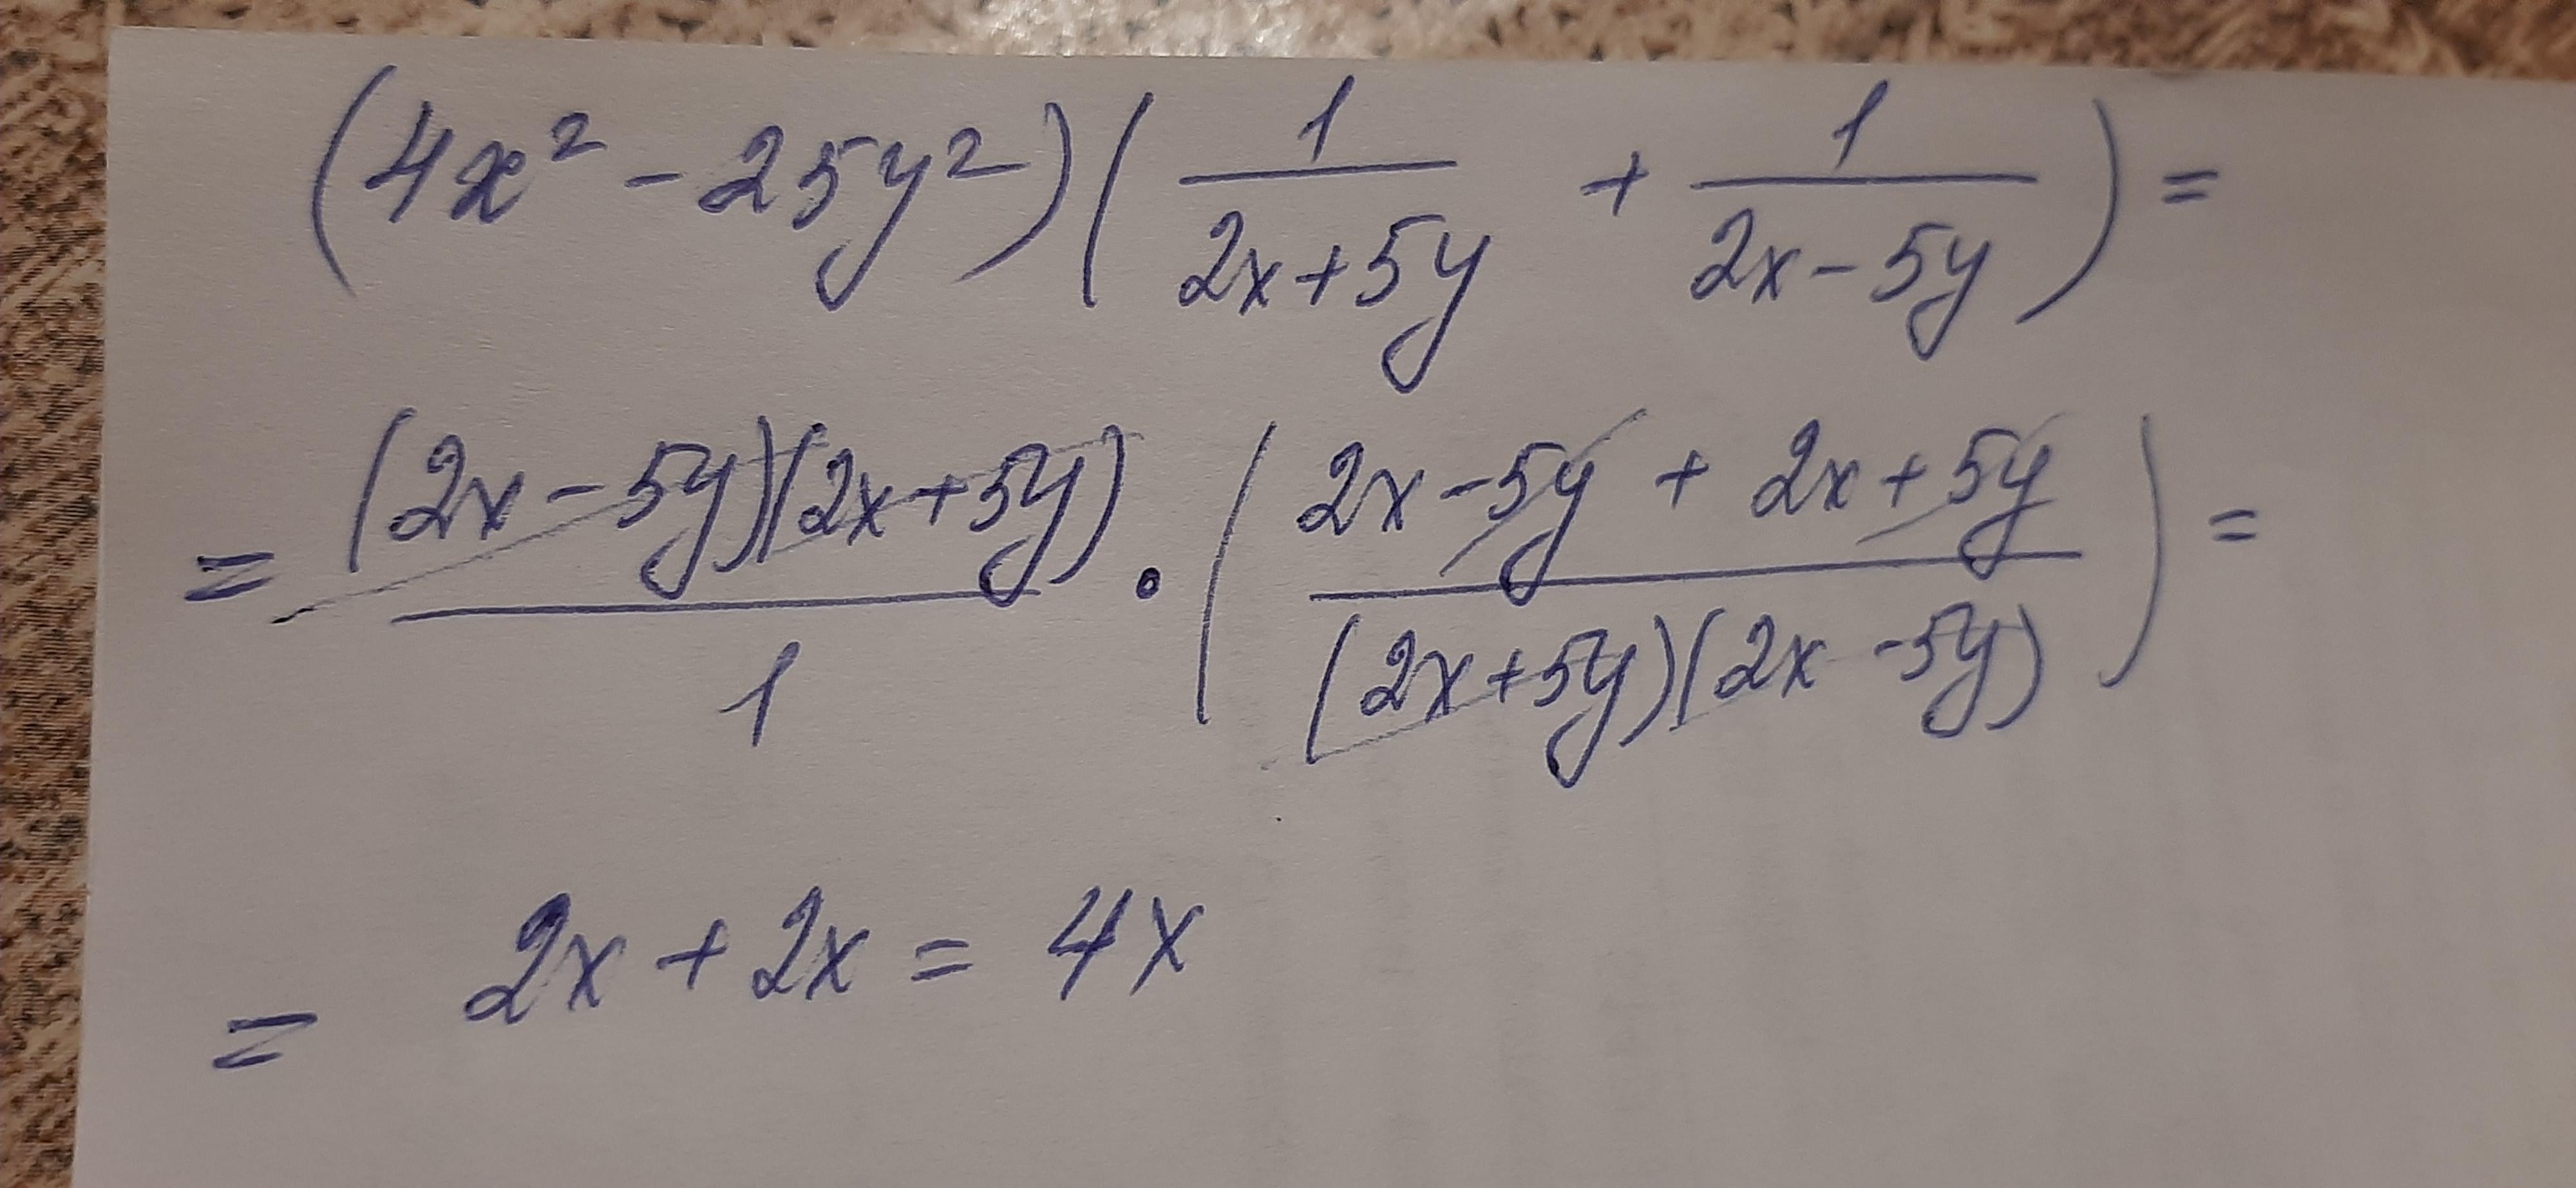 (4x² - 25y²)(1/(2x+5y) + 1/(2x-5y)) =
= (2x-5y)(2x+5y)/1 · ((2x-5y + 2x+5y)/((2x+5y)(2x-5y))) =
= 2x + 2x = 4x